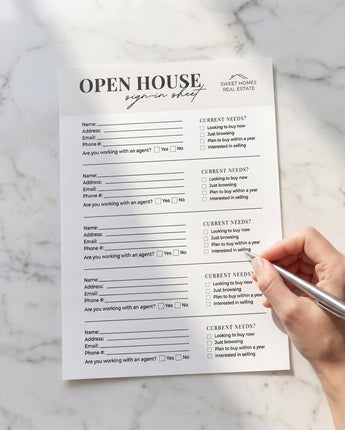 OPEN HOUSE
sign-in sheet
SWEET HOMES
REAL ESTATE
Name:
Address:
Email:
Phone #:
Are you working with an agent? Yes No
CURRENT NEEDS?
Looking to buy now
Just browsing
Plan to buy within a year
Interested in selling
Name:
Address:
Email:
Phone #:
Are you working with an agent? Yes No
CURRENT NEEDS?
Looking to buy now
Just browsing
Plan to buy within a year
Interested in selling
Name:
Address:
Email:
Phone #:
Are you working with an agent? Yes No
CURRENT NEEDS?
Looking to buy now
Just browsing
Plan to buy within a year
Interested in selling
Name:
Address:
Email:
Phone #:
Are you working with an agent? Yes No
CURRENT NEEDS?
Looking to buy now
Just browsing
Plan to buy within a year
Interested in selling
Name:
Address:
Email:
Phone #:
Are you working with an agent? Yes No
CURRENT NEEDS?
Looking to buy now
Just browsing
Plan to buy within a year
Interested in selling